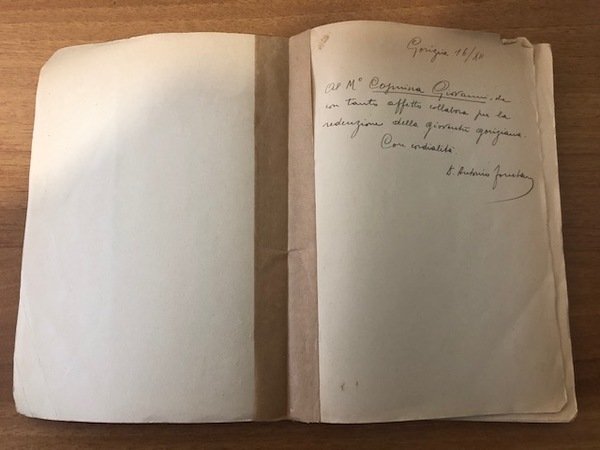 Gorizia 16/XII
Al M° Giovanni, da
con tanto affetto collabora per la
redenzione della gioventù goriziana
Con cordialità
D. Antonio